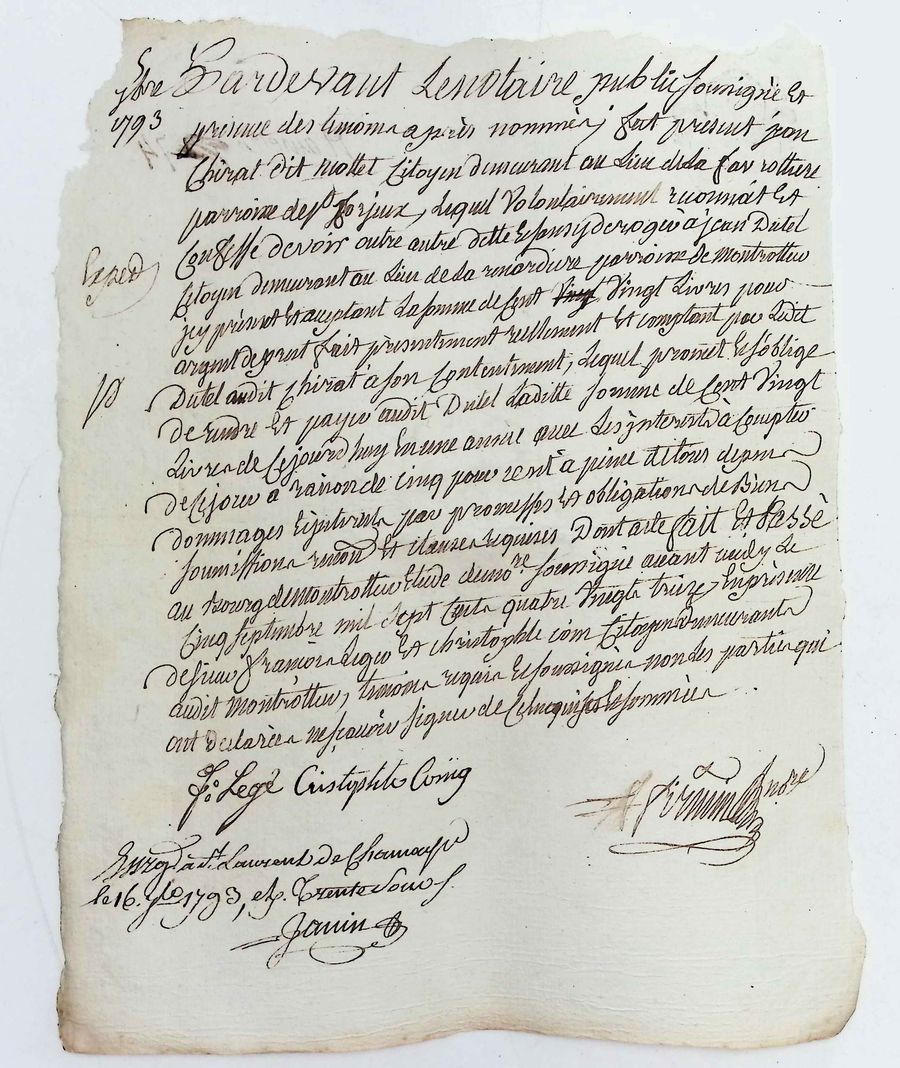 5 7bre
1793
Pardevant Le notaire public soussigné Et
présence des témoins après nommés, fut présent jean
Chirat dit mollet Citoyen demeurant au Lieu de La favrottiere
parroisse de st forjeux, Lequel Volontairement reconnoit Et
Confesse devoir outre autre dette Et sans y derogé à jean Dutel
Expéd
Citoyen demeurant au Lieu de La renardiere parroisse de montrottier
jcy présent Et aceptant La somme de Cent Vingt Livres pour
argent de prest fait presentement reellement Et comptant par Ledit
Dutel audit Chirat à son Contentement, Lequel promet Et s'oblige
de rendre Et payer audit Dutel Laditte somme de Cent Vingt
Livres de Ce jourd'huy En une année avec Les jnterests à Compter
de Ce jour à raison de Cinq pour cent à peine de tous depens
dommages Et jnterests par promesses Et obligations de Biens
soumissions renond Et clauses requises Dont acte fait Et Passé
au Bourg de montrottier Etude du nore soussigné avant midy Le
Cinq septembre mil sept Cents quatre Vingts treize, En présence
de sieur françois Legier Et christophle coin Citoyens Demeurants
audit montrottier, temoins requis Et soussignés non Les parties qui
ont declarées ne sçavoir signer de Ce Enquises Et sommées
fs Legé Cristophle Coing
nore
Enreg à st Laurent de Chamousset
le 16. 7bre 1793, et. Trente sous
Janin